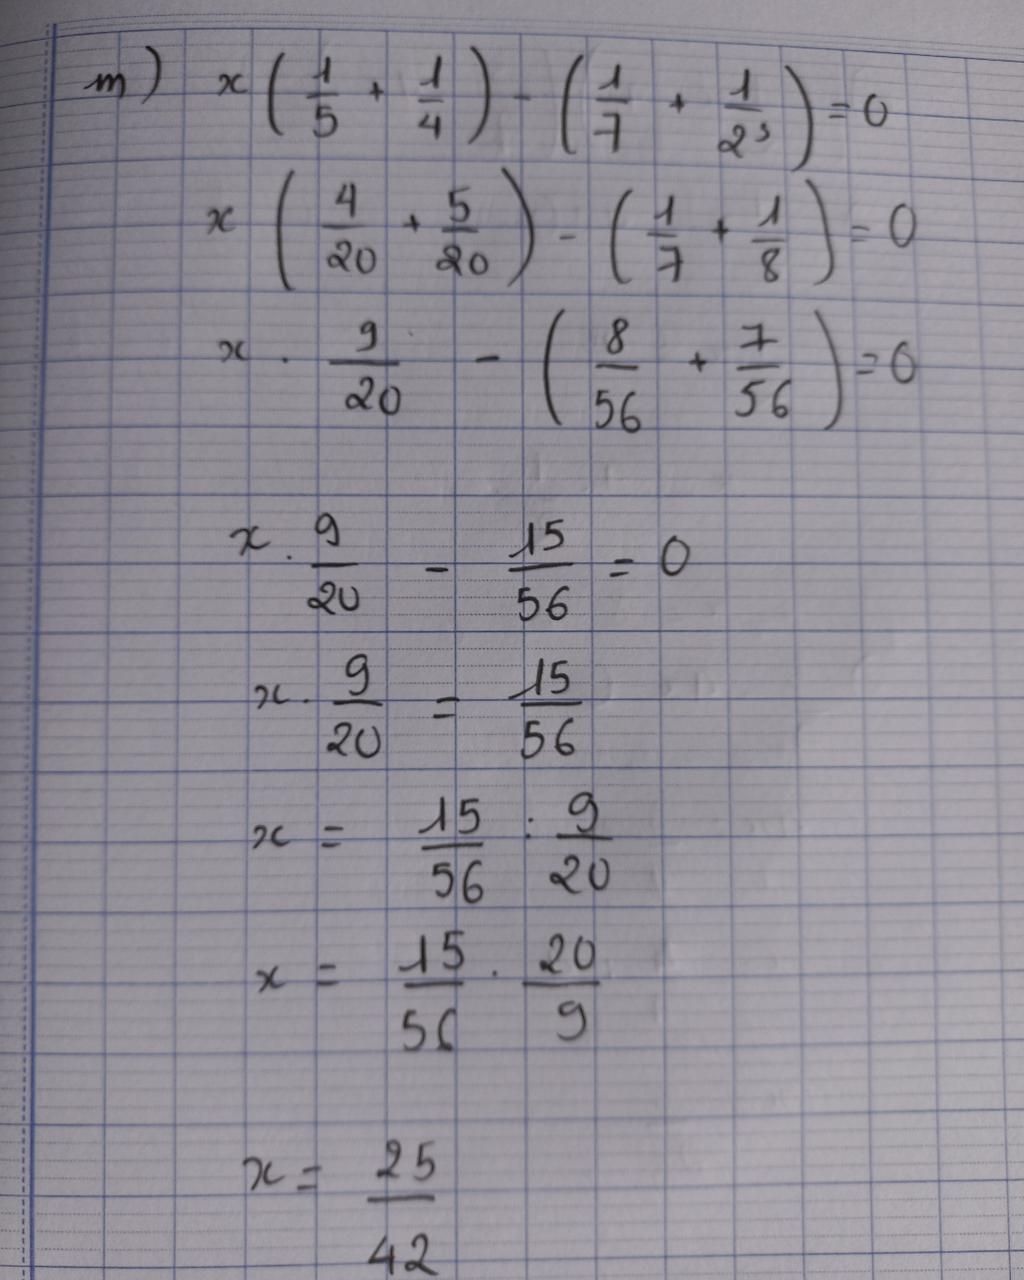 m) x(1/5 + 1/4) - (1/7 + 1/2³) = 0
x(4/20 + 5/20) - (1/7 + 1/8) = 0
x . 9/20 - (8/56 + 7/56) = 0
x . 9/20 - 15/56 = 0
x . 9/20 = 15/56
x = 15/56 : 9/20
x = 15/56 . 20/9
x = 25/42